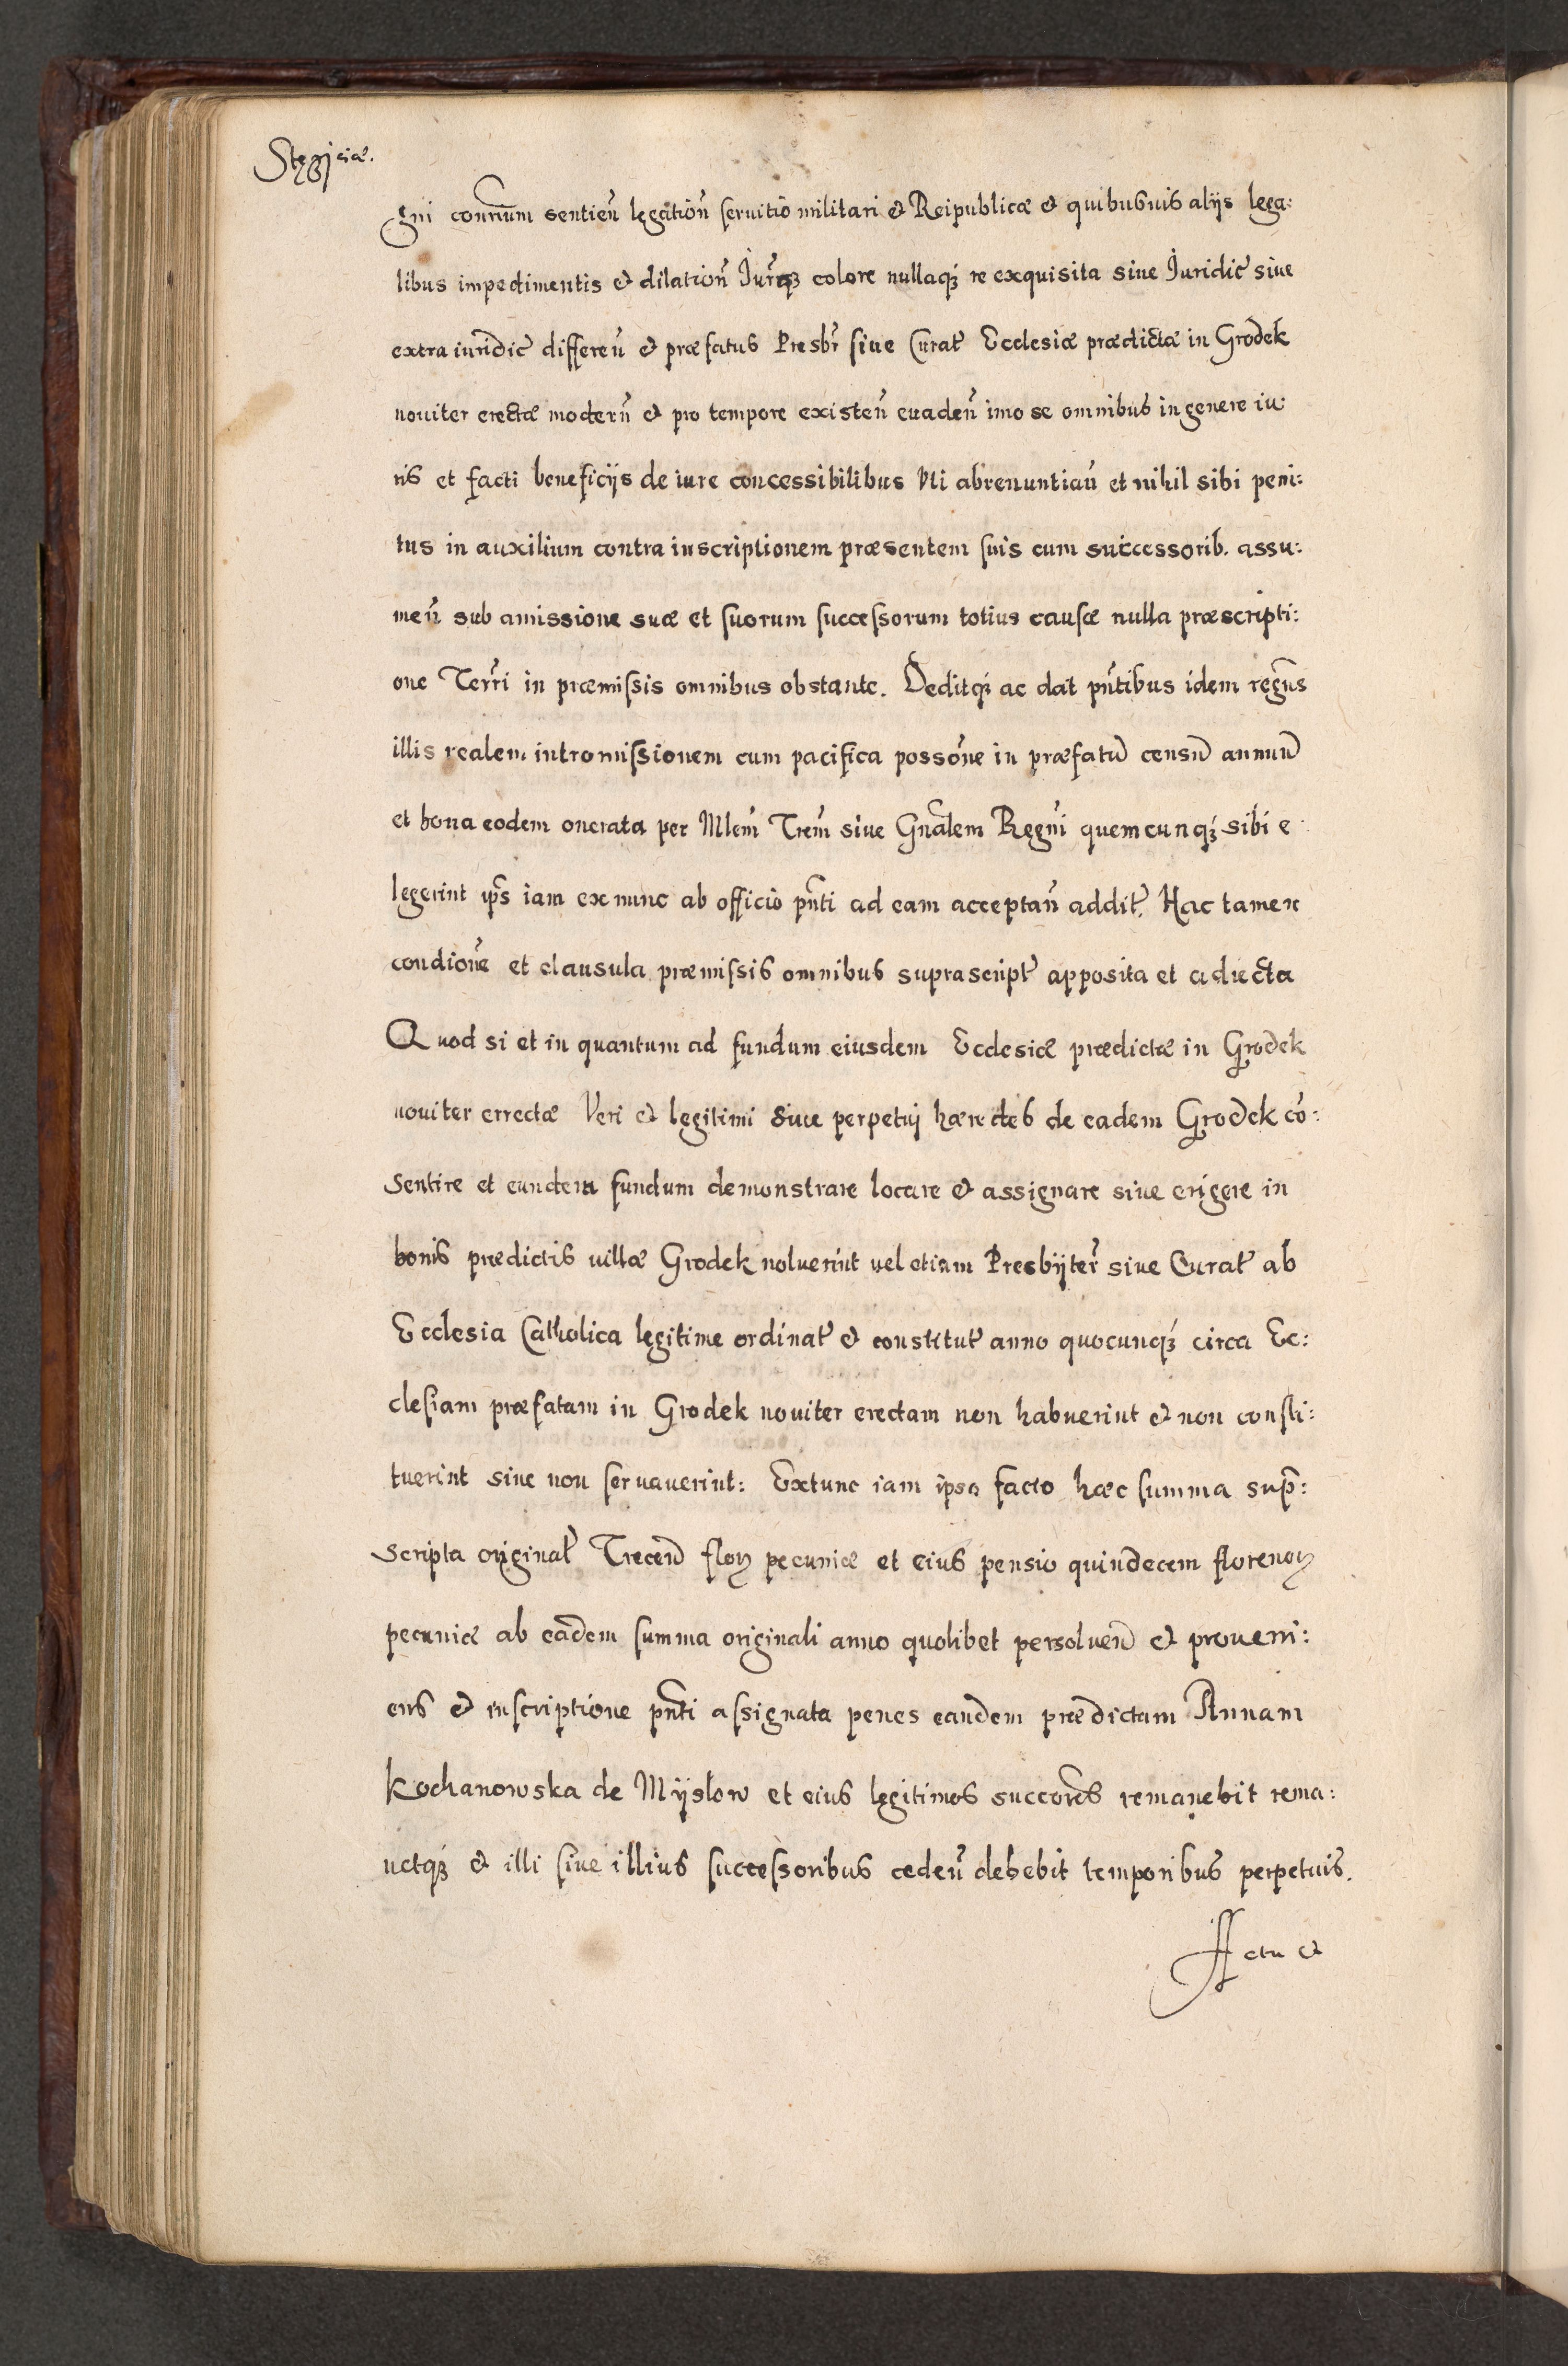 Stężiciæ.
gni conuum̃ sentieñ legatioñ seruitio militari & Reipublicæ & quibusuis alijs lega:
libus impedimentis & dilatioñ Jurq̃ȝ colore nullaqȝ re exquisita siue Juridic̃ siue
extra iuridic̃ differeñ & præfatus Presbr̃ siue Curat̃ Ecclesiæ prædictæ in Grodek
nouiter erectæ moderñ & pro tempore existeñ euadeñ imo se omnibus in genere iu:
ris et facti beneficijs de iure concessibilibus Vti abrenuntiaũ et nihil sibi peni:
tus in auxilium contra inscriptionem præsentem suis cum successorib. assu:
meñ sub amissione suæ et suorum successorum totius causæ nulla præscripti:
one Terr̃i in præmissis omnibus obstante. Deditqȝ ac dat pñtibus idem regñs
illis realem intromissionem cum pacifica possoñe in præfatũ censũ annuũ
et bona eodem onerata per Mlem̃ Trem̃ siue Gnãlem Regñi quemcunqȝ sibi e:
legerint ip̃s iam ex nunc ab officio pñti ad eam acceptañ addit̃. Hac tamen
condioñe et clausula præmissis omnibus suprascript̃ apposita et adiecta
Quod si et in quantum ad fundum eiusdem Ecclesiæ prædictæ in Grodek
nouiter errectæ Veri & legitimi siue perpetuj hæredes de eadem Grodek cõ:
sentire et eundem fundum demonstrare locare & assignare siue erigere in
bonis prædictis uillæ Grodek noluerint uel etiam Presbÿter̃ siue Curat̃ ab
Ecclesia Catholica legitime ordinat̃ & constitut̃ anno quocunqȝ circa Ec:
clesiam præfatam in Grodek nouiter erectam non habuerint & non consti:
tuerint siue non seruauerint: Extunc iam ipso facto hæc summa sup̃:
scripta original̃ Trecen̄ floꝝ pecuniæ et eius pensio quindecem florenoꝝ
pecuniæ ab eadem summa originali anno quolibet persoluen̄ & proueni:
ens & inscriptione pñti assignata penes eandem prædictam Annam
Kochanowska de Mÿslow et eius legitimos succores̃ remanebit rema:
netqȝ & illi siue illius successoribus cedeñ debebit temporibus perpetuis.
Actu &